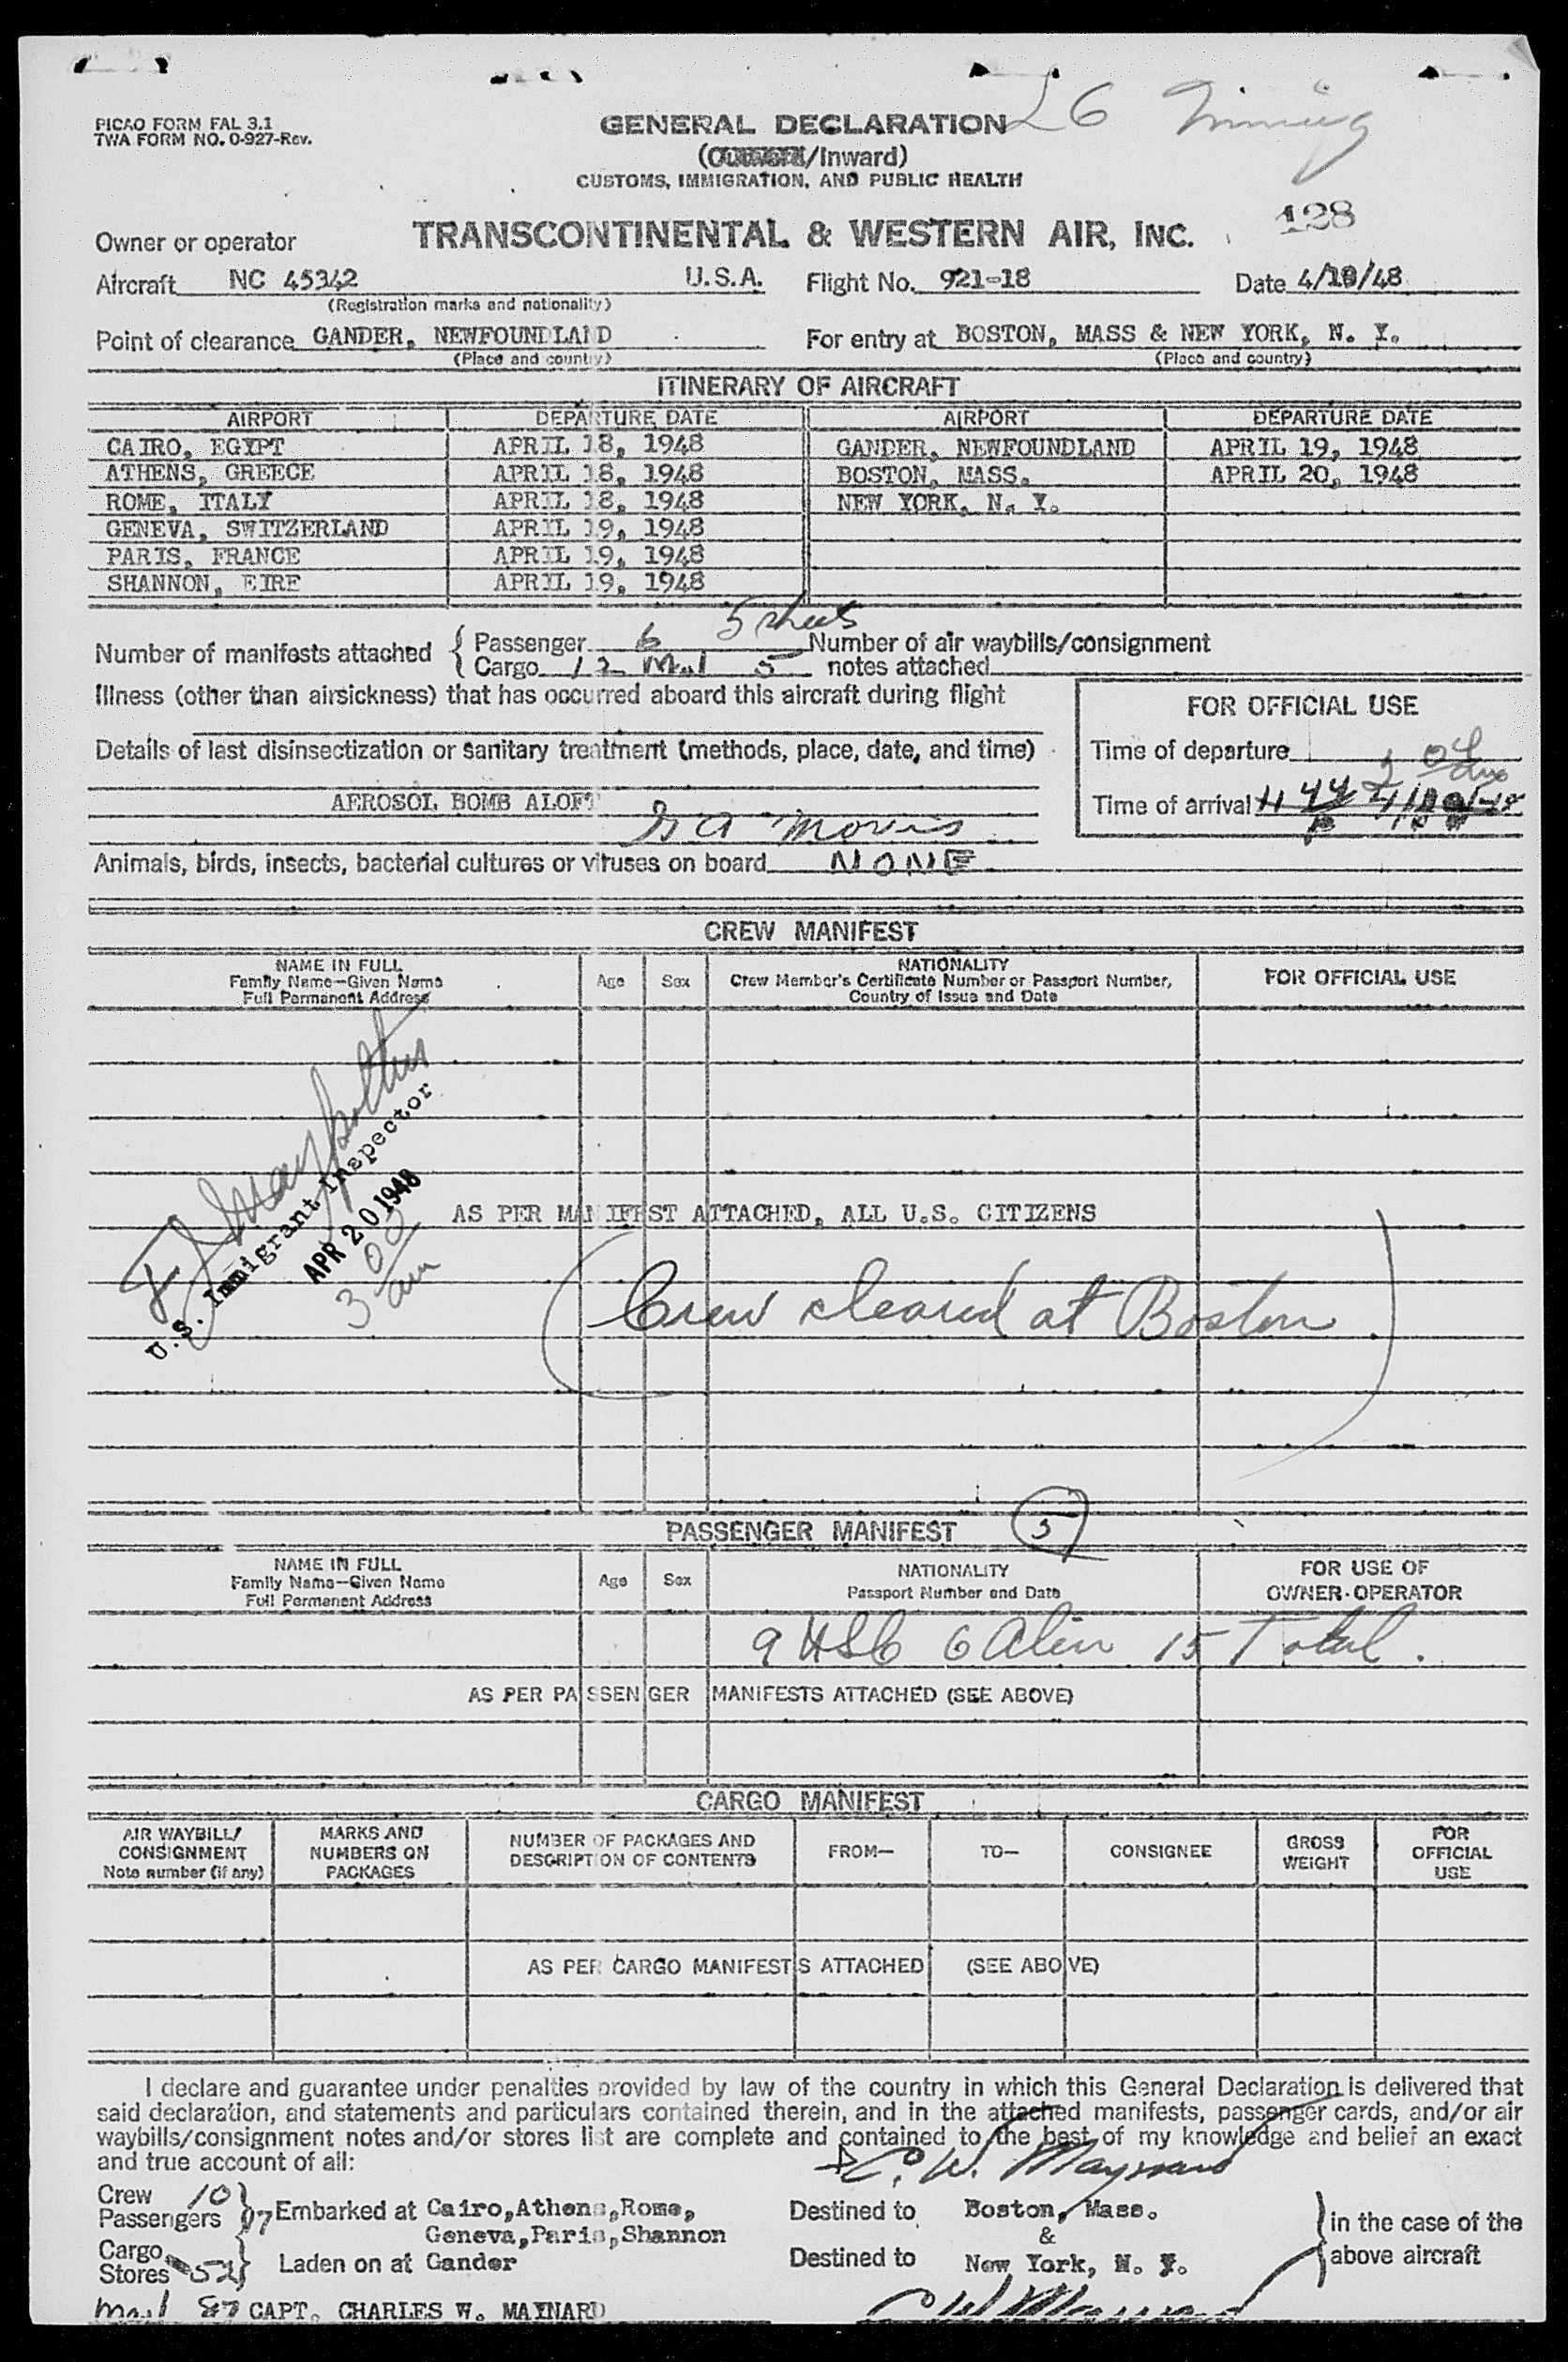 PICAO FORM FAL 3.1
TWA FORM NO. 0-927-Rev.
GENERAL DECLARATION
(Outward/Inward)
CUSTOMS, IMMIGRATION, AND PUBLIC HEALTH
128
Owner or operator TRANSCONTINENTAL & WESTERN AIR, INC.
Aircraft NC 45342 U.S.A. Flight No. 921-18 Date 4/18/48
(Registration marks and nationality)
Point of clearance GANDER, NEWFOUNDLAND For entry at BOSTON, MASS & NEW YORK, N. Y.
(Place and country) (Place and country)
ITINERARY OF AIRCRAFT
AIRPORT DEPARTURE DATE AIRPORT DEPARTURE DATE
CAIRO, EGYPT APRIL 18, 1948 GANDER, NEWFOUNDLAND APRIL 19, 1948
ATHENS, GREECE APRIL 18, 1948 BOSTON, MASS. APRIL 20, 1948
ROME, ITALY APRIL 18, 1948 NEW YORK, N. Y.
GENEVA, SWITZERLAND APRIL 19, 1948
PARIS, FRANCE APRIL 19, 1948
SHANNON, EIRE APRIL 19, 1948
5 sheets
Number of manifests attached { Passenger 6 Number of air waybills/consignment
Cargo 12 Mail 5 notes attached
Illness (other than airsickness) that has occurred aboard this aircraft during flight
FOR OFFICIAL USE
Details of last disinsectization or sanitary treatment (methods, place, date, and time)
Time of departure
AEROSOL BOMB ALOFT
Time of arrival
G A Morris
Animals, birds, insects, bacterial cultures or viruses on board NONE
CREW MANIFEST
NAME IN FULL
Family Name—Given Name
Full Permanent Address
Age Sex
NATIONALITY
Crew Member's Certificate Number or Passport Number,
Country of Issue and Date
FOR OFFICIAL USE
U.S. Immigrant Inspector
APR 20 1948
3 00 am
AS PER MANIFEST ATTACHED, ALL U.S. CITIZENS
(Crew cleared at Boston)
PASSENGER MANIFEST
NAME IN FULL
Family Name—Given Name
Full Permanent Address
Age Sex
NATIONALITY
Passport Number and Date
FOR USE OF
OWNER-OPERATOR
9 USC 6 Alien 15 Total.
AS PER PASSENGER MANIFESTS ATTACHED (SEE ABOVE)
CARGO MANIFEST
AIR WAYBILL/
CONSIGNMENT
Note number (if any)
MARKS AND
NUMBERS ON
PACKAGES
NUMBER OF PACKAGES AND
DESCRIPTION OF CONTENTS
FROM— TO— CONSIGNEE
GROSS
WEIGHT
FOR
OFFICIAL
USE
AS PER CARGO MANIFESTS ATTACHED (SEE ABOVE)
I declare and guarantee under penalties provided by law of the country in which this General Declaration is delivered that
said declaration, and statements and particulars contained therein, and in the attached manifests, passenger cards, and/or air
waybills/consignment notes and/or stores list are complete and contained to the best of my knowledge and belief an exact
and true account of all:
C. W. Maynard
Crew 10
Passengers 07 } Embarked at Cairo,Athens,Rome, Destined to Boston, Mass.
Geneva,Paris,Shannon &
} in the case of the
above aircraft
Cargo
Stores 52 } Laden on at Gander Destined to New York, N. Y.
Mail 87 CAPT. CHARLES W. MAYNARD
C W Maynard